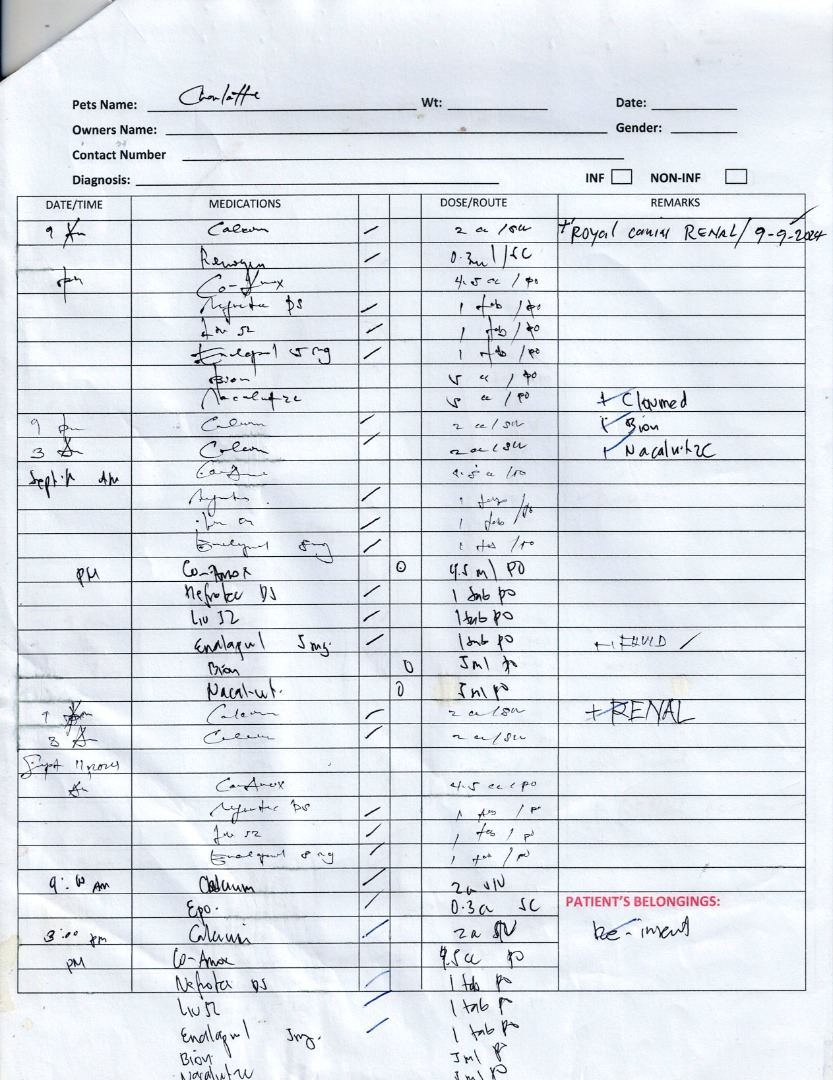 Pets Name: Charlotte Wt: Date:
Owners Name: Gender:
Contact Number
Diagnosis: INF NON-INF
DATE/TIME MEDICATIONS DOSE/ROUTE REMARKS
9 Am Calcium 2 cc / SIV + Royal canin RENAL / 9-9-2024
Renogen 0.3ml / SC
pm Co-Amox 4.5 cc / po
Nefrotec DS 1 tab / po
Liv 52 1 tab / po
Enalapril 5 mg 1 tab / po
Bion 5 cc / po
Nacalvit 2C 5 cc / po + Clavmed
9 pm Calcium 2 cc / SIV + Bion
3 Am Calcium 2 cc / SIV + Nacalvit 2C
Sept. AM Co-Amox 4.5 cc / po
Nefrotec 1 tab / po
Liv 52 1 tab / po
Enalapril 5mg 1 tab / po
PM Co-Amox 0 4.5 ml PO
Nefrotec DS 1 tab po
Liv 52 1 tab po
Enalapril 5mg. 1 tab po
Bion 0 5ml po
Nacalvit. 0 5ml po
9 Calcium 2 cc / SIV + RENAL
3 Am Calcium 2 cc / SIV
Sept 11, 2024
Am Co-Amox 4.5 cc / po
Nefrotec DS 1 tab / po
Liv 52 1 tab / po
Enalapril 5 mg 1 tab / po
9:00 AM Calcium 2cc SIV
Epo. 0.3cc SC PATIENT'S BELONGINGS:
3:00 pm Calcium 2cc SIV Re-insert
PM Co-Amox 4.5cc po
Nefrotec DS 1 tab po
Liv 52 1 tab po
Enalapril 5mg. 1 tab po
Bion 5ml po
Nacalvit 2C 5ml po